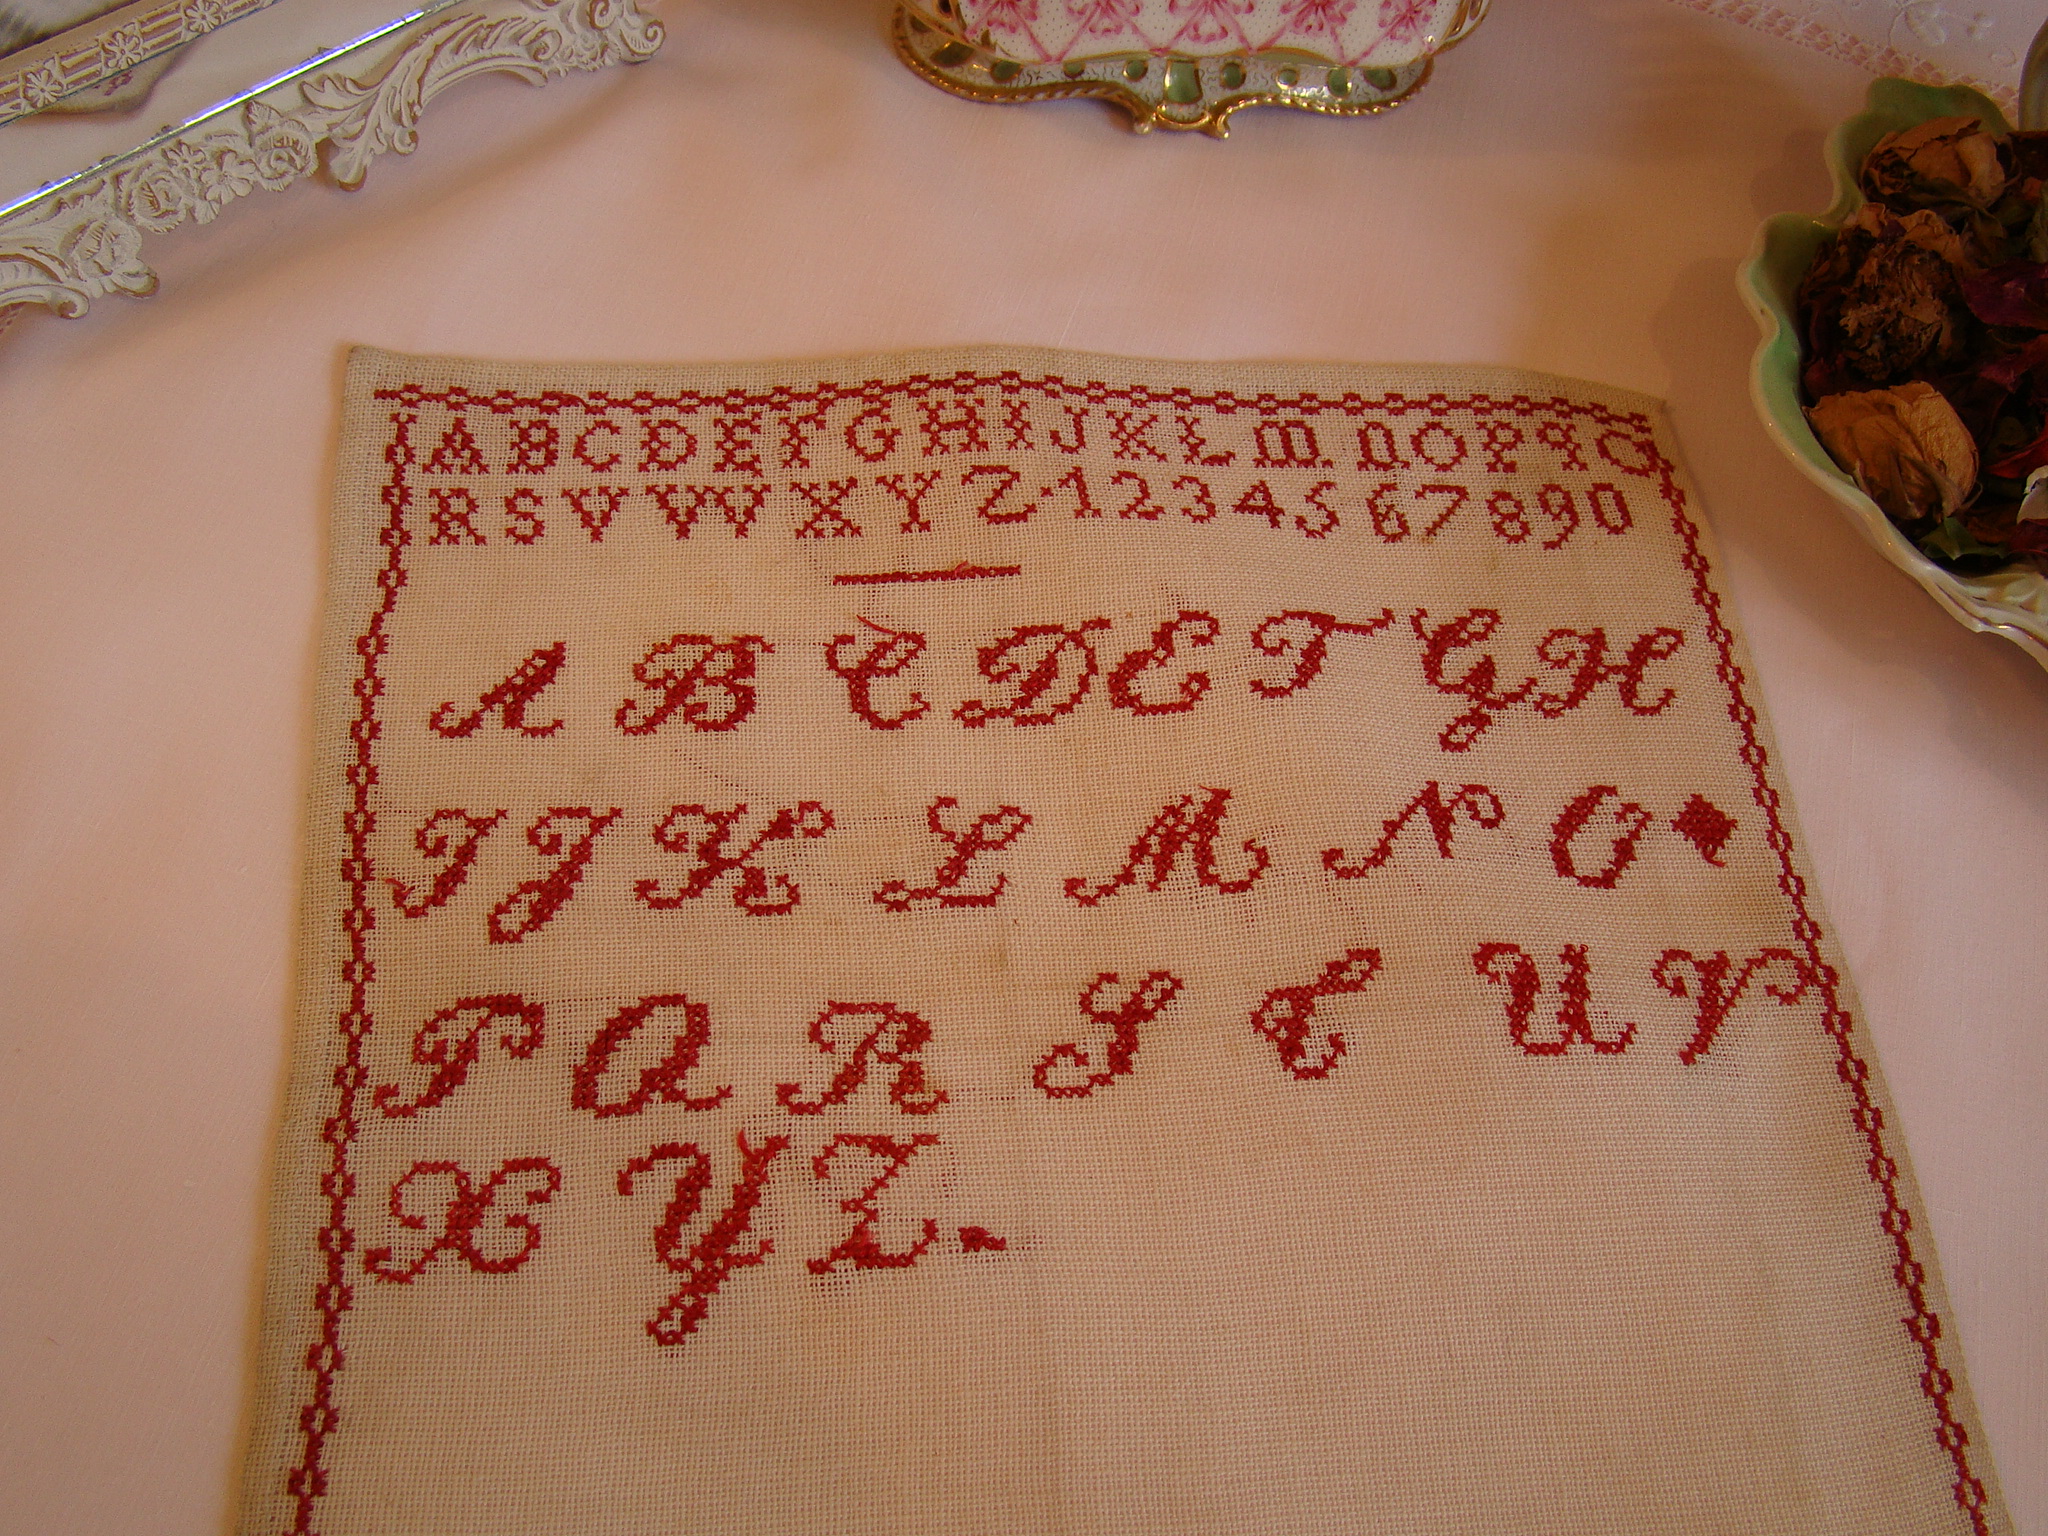 ABCDEFGHIJKLMNOPqO
RSVWXYZ1234567890
ABCDEFGH
IJKLMNO
PQRSTUV
XYZ.